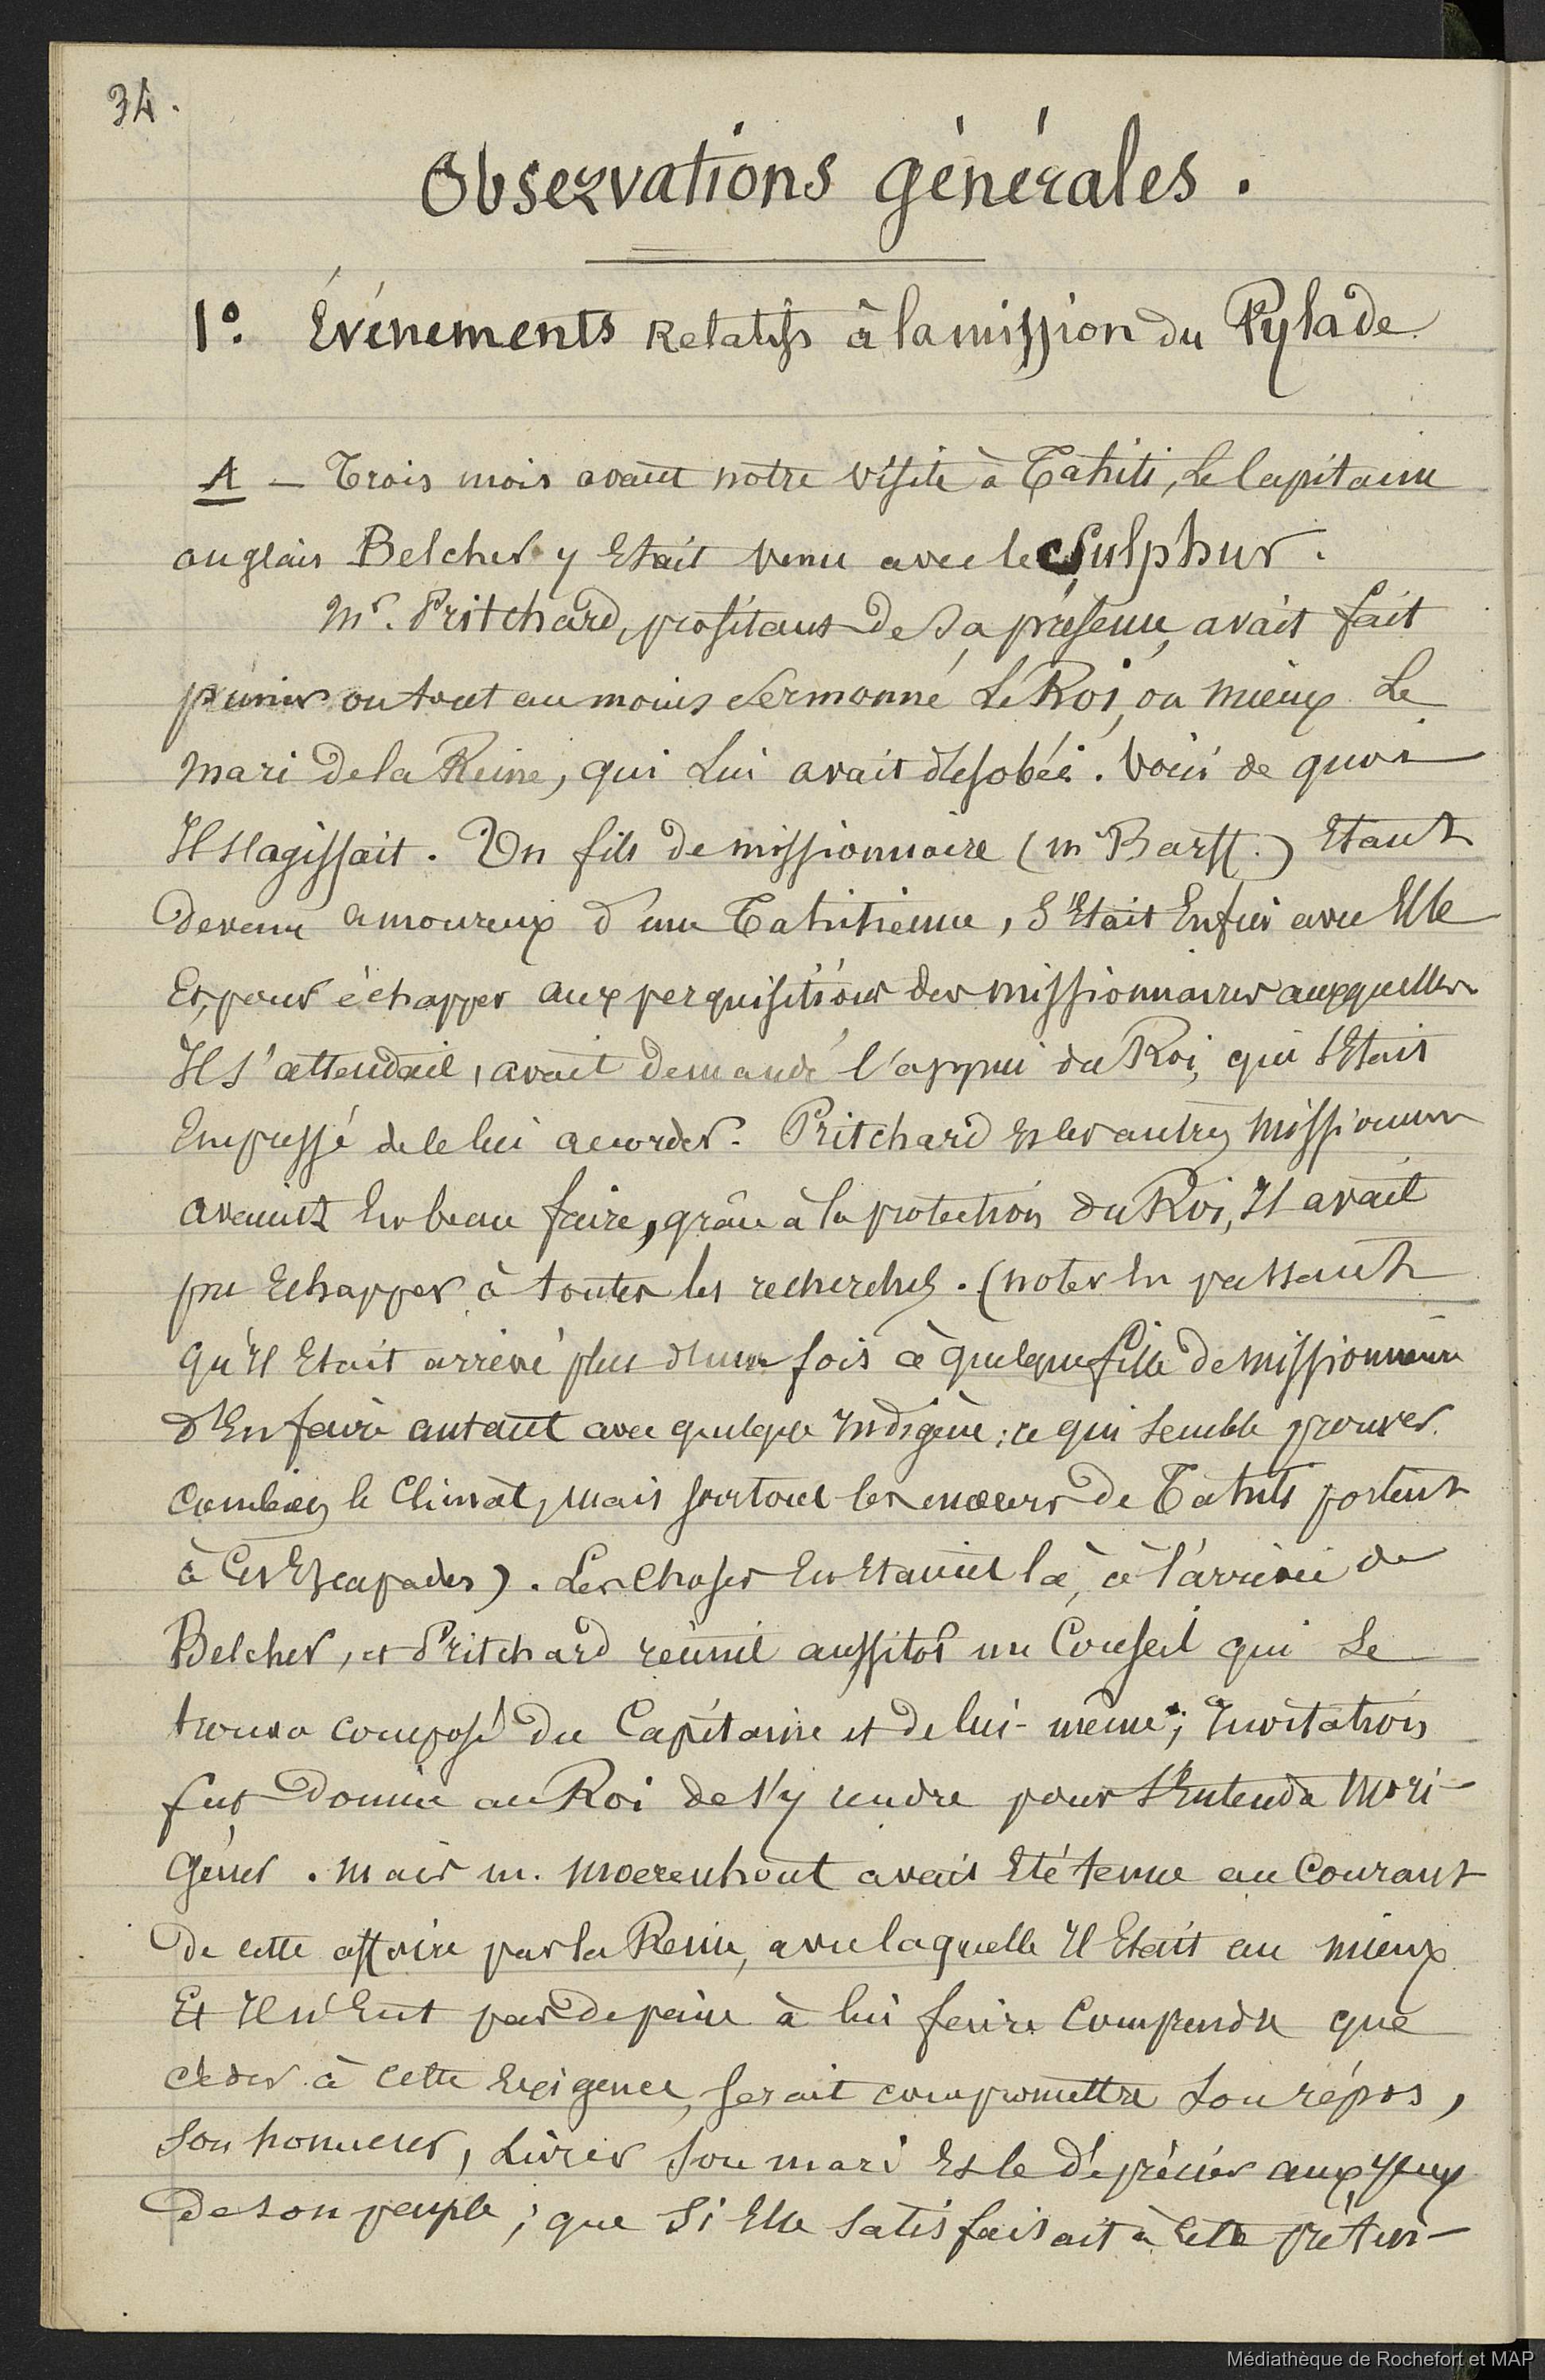 34.
Observations générales.
1º. Événements Relatifs à la mission du Pylade
A – Trois mois avant notre visite à Tahiti, Le Capitaine
anglais Belcher y Etait venu avec le Sulphur.
Mr. Pritchard, profitant de sa présence, avait fait
punir ou tout au moins Sermonné Le Roi, ou mieux Le
mari de la Reine, qui Lui avait désobéi. Voici de quoi
Il s'agissait. Un fils de missionnaire (mr Barff.) Etant
devenu amoureux d'une Tahitienne, S'Etait Enfui avec Elle
Et, pour échapper aux perquisitions des missionnaires auxquelles
Il s'attendait, avait demandé l'appui du Roi, qui s'Etait
Empressé de le lui accorder. Pritchard Et les autres missionnaires
avaient Eu beau faire, grâce à la protection du Roi, Il avait
pu Echapper à toutes les recherches. (noter En passant
qu'Il Etait arrivé plus d'une fois à quelque fille de missionnaire
d'En faire autant avec quelque Indigène; ce qui semble prouver
Combien le Climat, mais surtout les mœurs de Tahiti portent
à Ces Escapades). Les Choses En Etaient là, à l'arrivée de
Belcher, et Pritchard réunit aussitôt un Conseil qui Se
trouva composé du Capitaine et de lui-même; Invitation
fut Donnée au Roi de s'y rendre pour S'Entendre Mori-
géner. Mais m. Moerenhout avait Eté tenu au Courant
de cette affaire par la Reine, avec laquelle Il Etait au mieux
Et Il n'Eut pas de peine à lui faire Comprendre que
céder à cette Exigence, serait compromettre Son répos,
Son honneur, Livrer Son mari Et le déprécier aux yeux
de son peuple; que Si Elle Satisfaisait à cette préten-
Médiathèque de Rochefort et MAP